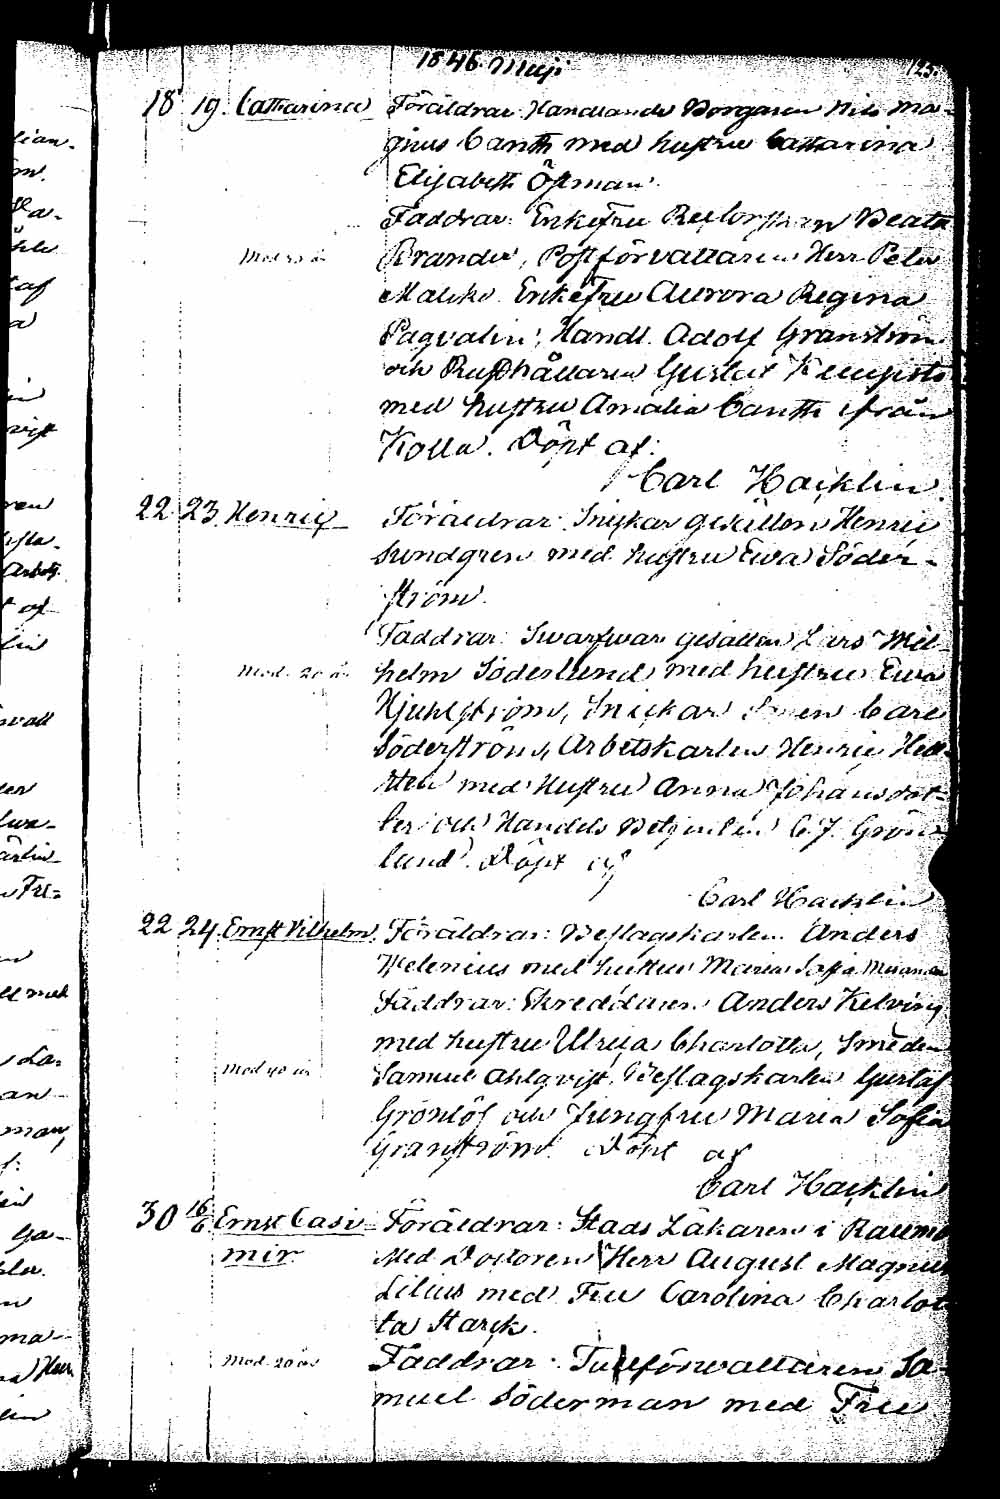 1846 Maji
125.
18 19. Catharina Föräldrar: Handlande Borgaren Nils Ma-
gnus Canth med hustru Catharina
Elisabeth Öhman.
Faddrar: Enkefru Beata
Brander, Postförvaltaren Herr Peter
Enkefru Aurora Regina
Pagvalin, Handl. Adolf Granström
och Rusthållaren Gustaf
med hustru Amalia Canth ifrån
Kolla. Döpt af:
Carl Hacklin
22 23 Henric Föräldrar: Snickar gesällen Henric
Sundgren med hustru Ewa Söder-
ström.
Faddrar: Swarfware gesällen Lars Wil-
Mod. 20 år helm Söderlund med hustru Ewa
Hjuhlström, Snickar Carl
Söderström, Arbetskarlen Henric Hell-
sten med Hustru Anna Johansdot-
ter och Handels Betjenten C. J. Grön-
lund. Döpt af
Carl Hacklin
22 24. Ernst Vilhelm. Föräldrar: Beslagskarlen Anders
Welenius med hustru Maria Sofia
Faddrar: Skreddaren Anders Kelving
med hustru Ulrica Charlotta, Smeden
Mod 40 år Samuel Ahlqvist, Beslagskarlen Gustaf
Grönlöf och Jungfru Maria Sofia
Granström. Döpt af
Carl Hacklin
30 16/6 Ernst Casi- Föräldrar: Stads Läkaren i Raumo
mir Med. Doctoren Herr August Magnus
Lilius med Fru Carolina Charlot-
ta Starck.
Mod. 20 år Faddrar: Tullförvaltaren Sa-
muel Söderman med Fru